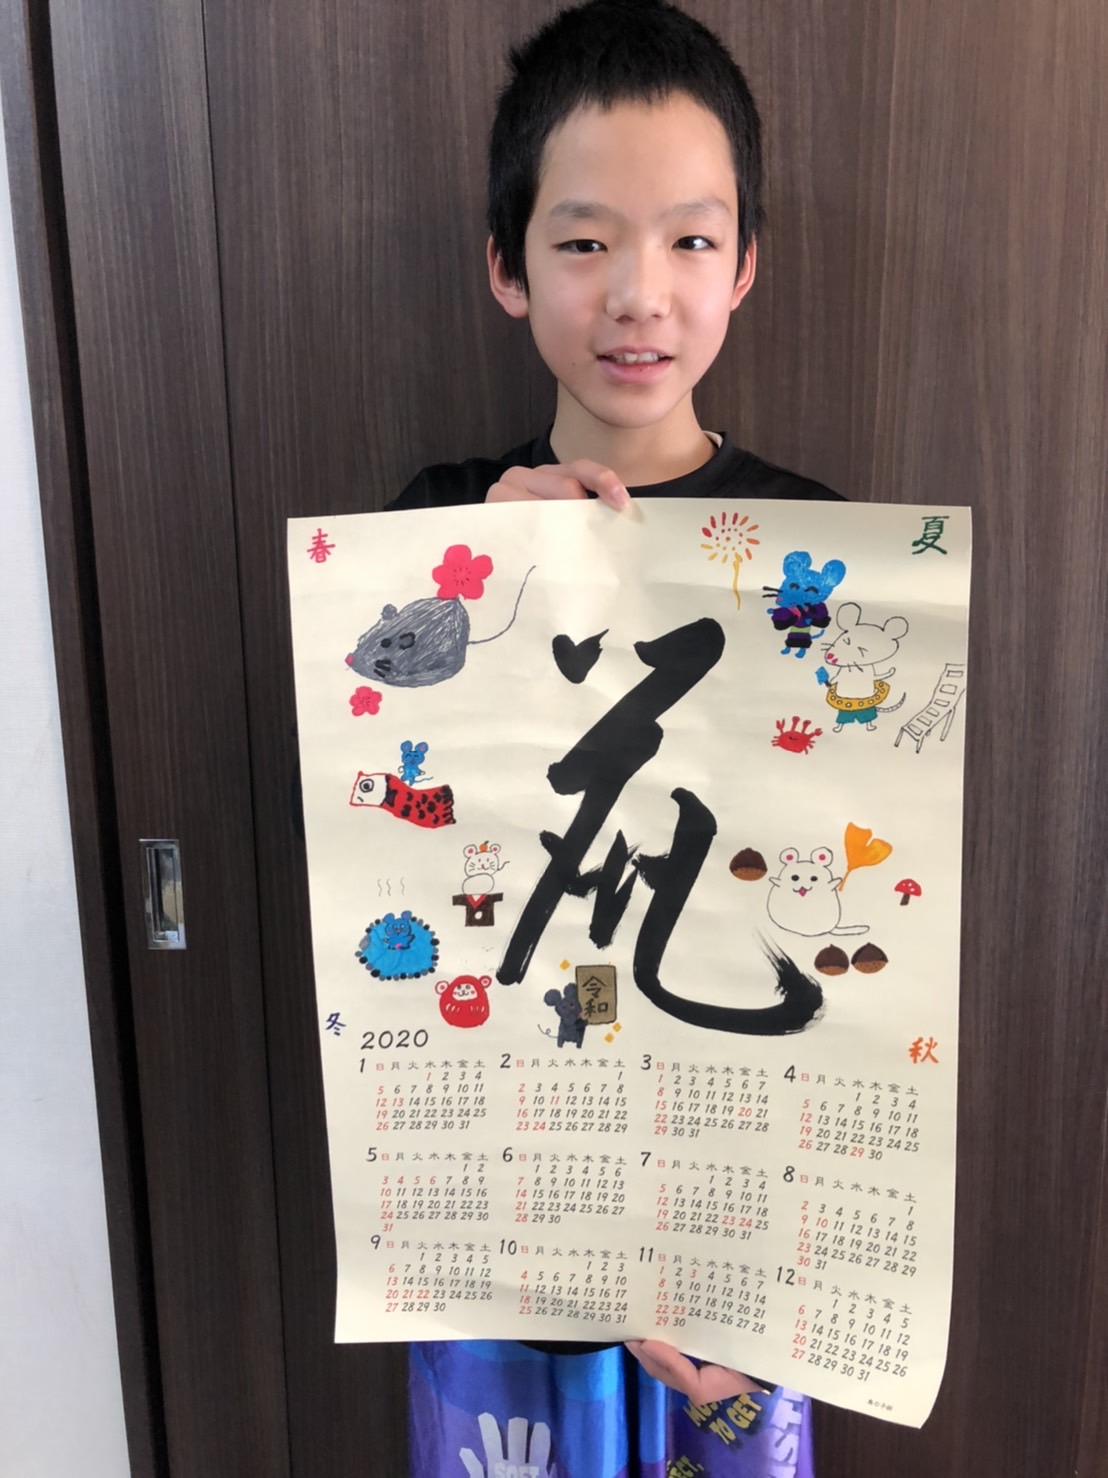 春
夏
鼠
令
和
冬
秋
2020
1 日 月 火 水 木 金 土
1 2 3 4
5 6 7 8 9 10 11
12 13 14 15 16 17 18
19 20 21 22 23 24 25
26 27 28 29 30 31
2 日 月 火 水 木 金 土
1
2 3 4 5 6 7 8
9 10 11 12 13 14 15
16 17 18 19 20 21 22
23 24 25 26 27 28 29
3 日 月 火 水 木 金 土
1 2 3 4 5 6 7
8 9 10 11 12 13 14
15 16 17 18 19 20 21
22 23 24 25 26 27 28
29 30 31
4 日 月 火 水 木 金 土
1 2 3 4
5 6 7 8 9 10 11
12 13 14 15 16 17 18
19 20 21 22 23 24 25
26 27 28 29 30
5 日 月 火 水 木 金 土
1 2
3 4 5 6 7 8 9
10 11 12 13 14 15 16
17 18 19 20 21 22 23
24 25 26 27 28 29 30
31
6 日 月 火 水 木 金 土
1 2 3 4 5 6
7 8 9 10 11 12 13
14 15 16 17 18 19 20
21 22 23 24 25 26 27
28 29 30
7 日 月 火 水 木 金 土
1 2 3 4
5 6 7 8 9 10 11
12 13 14 15 16 17 18
19 20 21 22 23 24 25
26 27 28 29 30 31
8 日 月 火 水 木 金 土
1
2 3 4 5 6 7 8
9 10 11 12 13 14 15
16 17 18 19 20 21 22
23 24 25 26 27 28 29
30 31
9 日 月 火 水 木 金 土
1 2 3 4 5
6 7 8 9 10 11 12
13 14 15 16 17 18 19
20 21 22 23 24 25 26
27 28 29 30
10 日 月 火 水 木 金 土
1 2 3
4 5 6 7 8 9 10
11 12 13 14 15 16 17
18 19 20 21 22 23 24
25 26 27 28 29 30 31
11 日 月 火 水 木 金 土
1 2 3 4 5 6 7
8 9 10 11 12 13 14
15 16 17 18 19 20 21
22 23 24 25 26 27 28
29 30
12 日 月 火 水 木 金 土
1 2 3 4 5
6 7 8 9 10 11 12
13 14 15 16 17 18 19
20 21 22 23 24 25 26
27 28 29 30 31
SOFT
TO GET